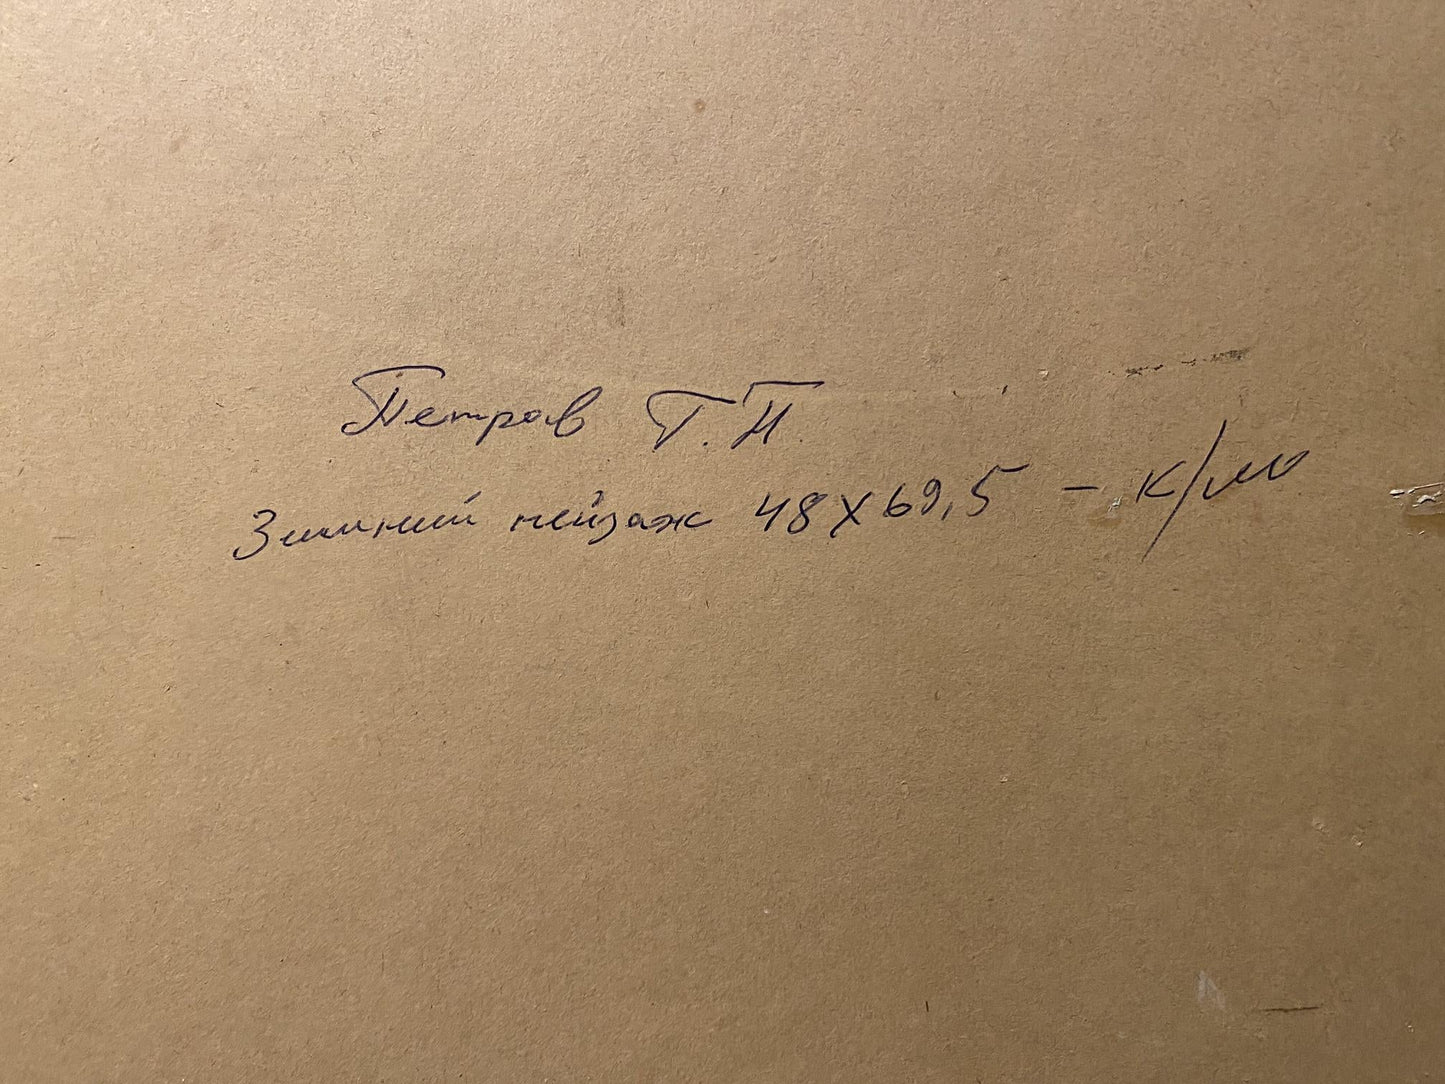 Петров Г.П.
Зимний пейзаж 48х69,5 – к/м